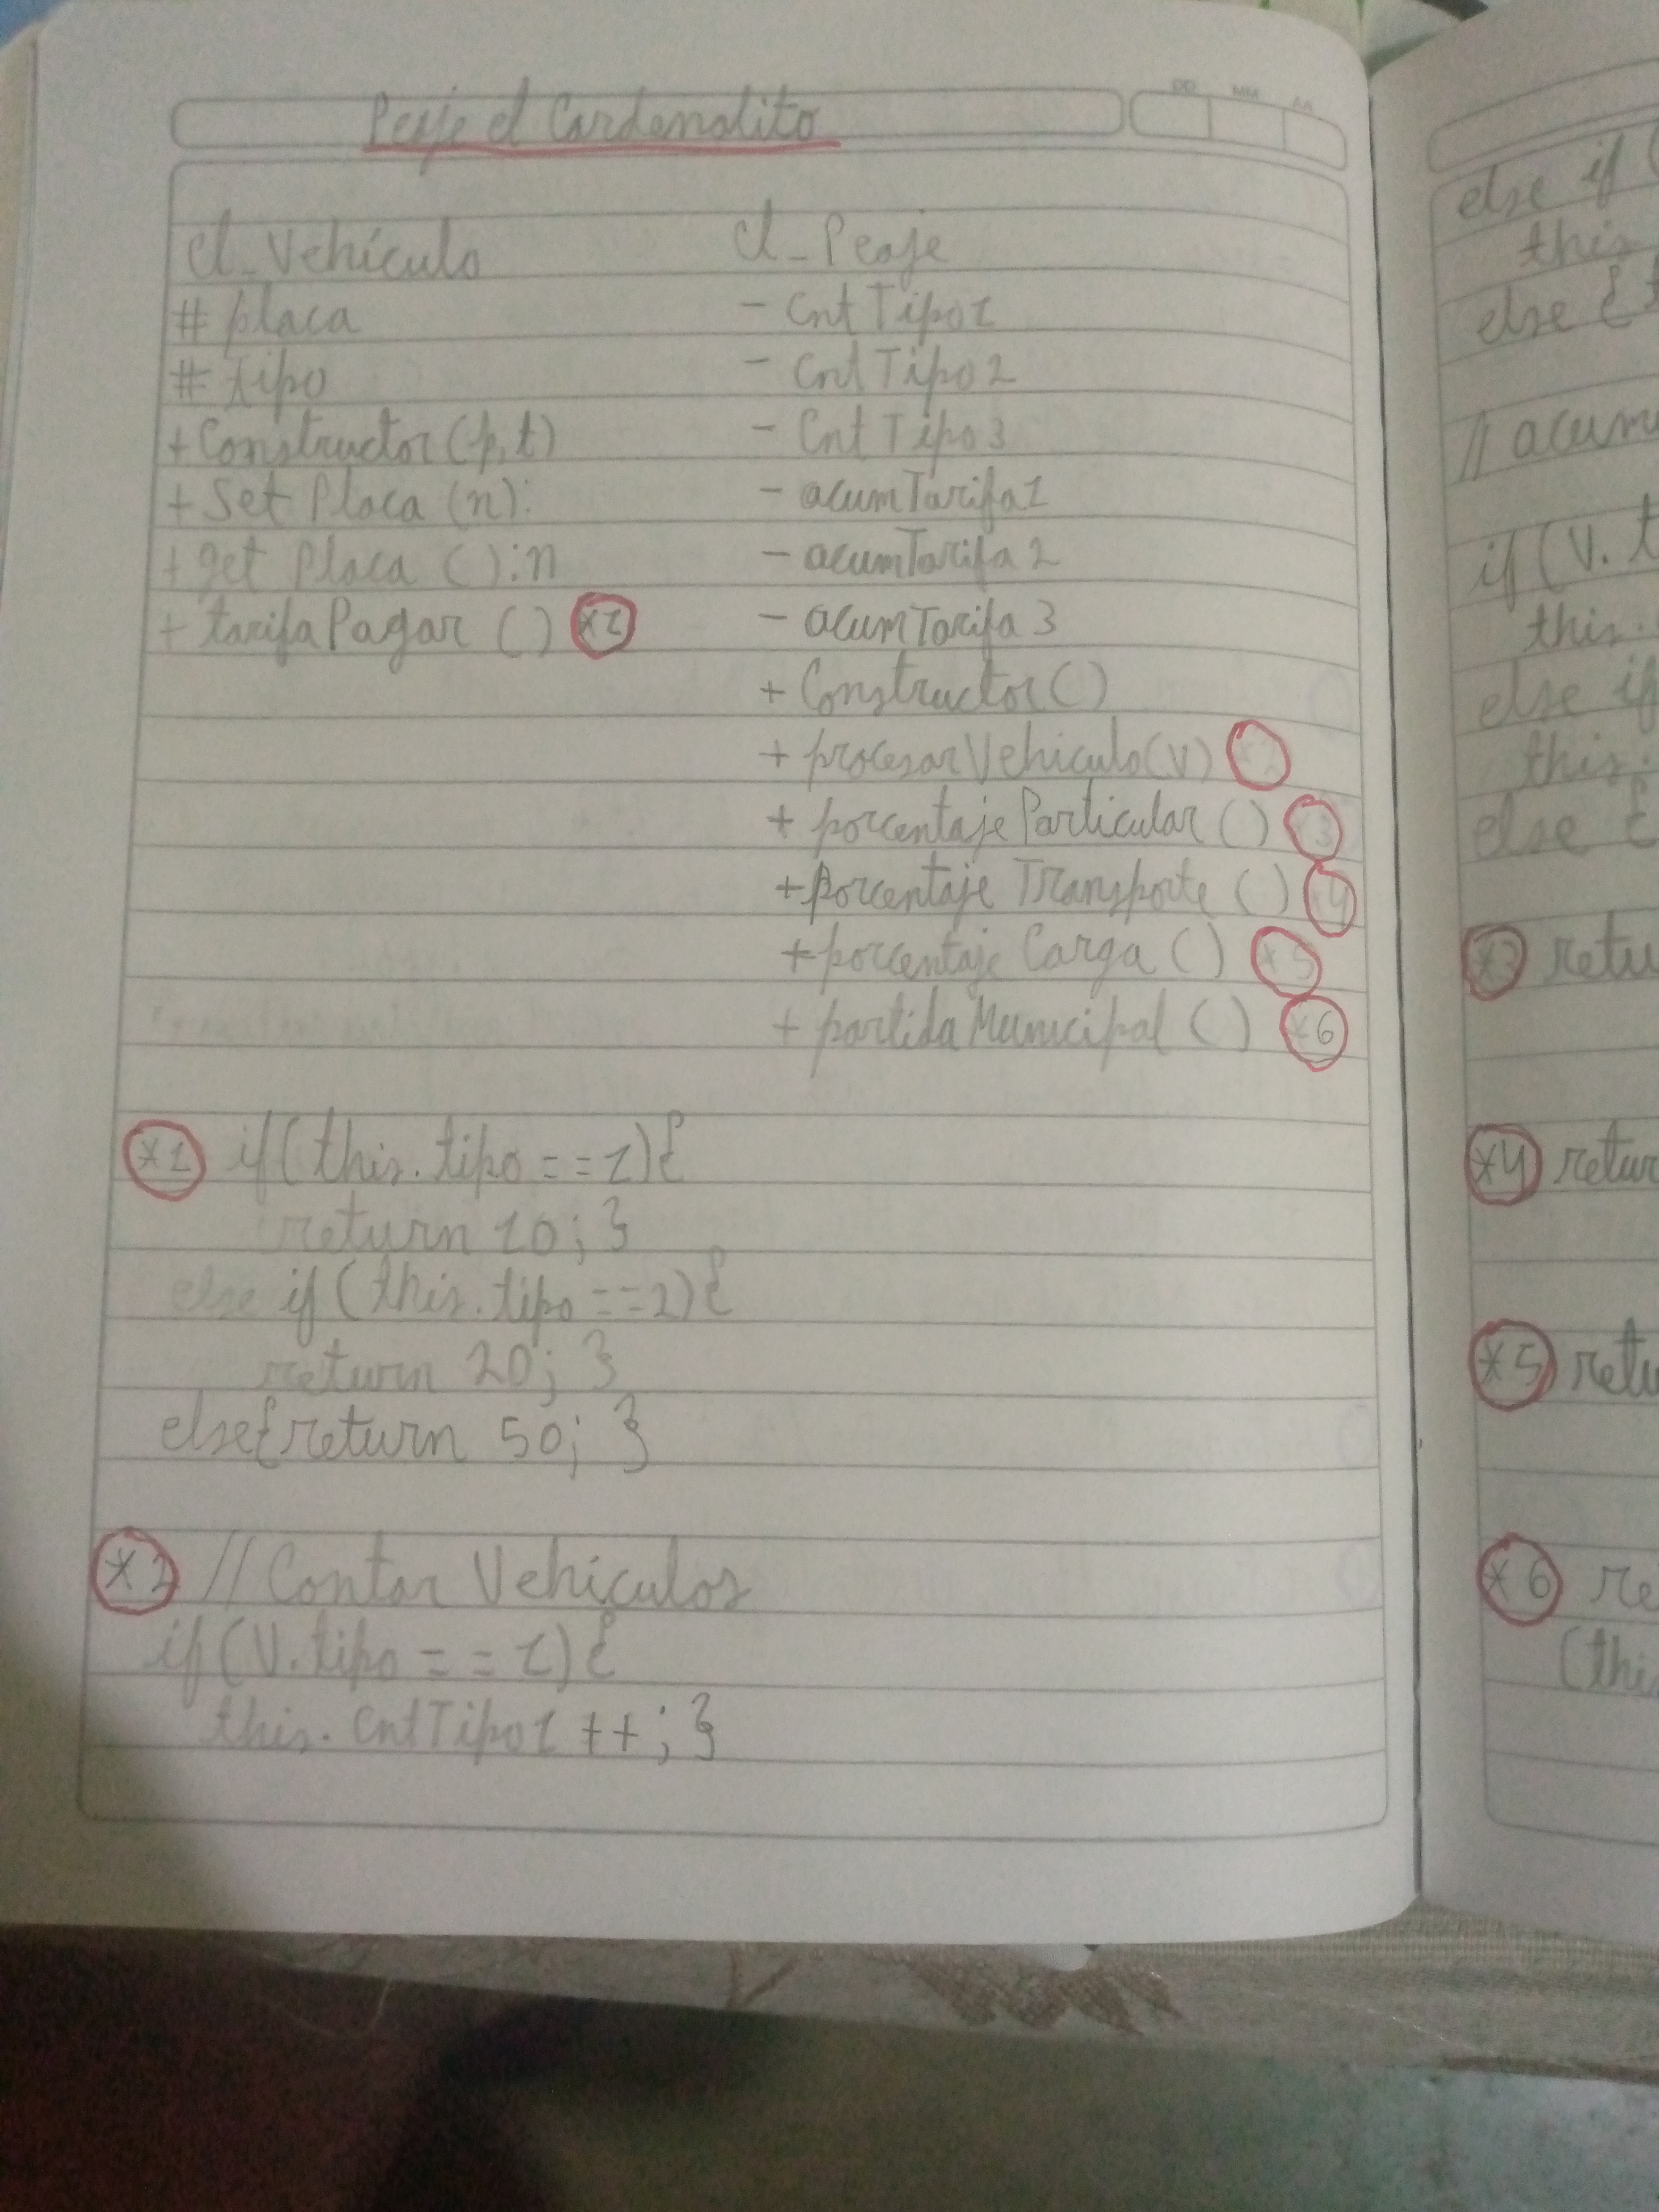 Peaje el Cardenalito
DD MM AA
Cl_Vehículo
# placa
# tipo
+ Constructor (p,t)
+ Set Placa (n):
+ get Placa ( ):n
+ tarifaPagar ( ) *1
Cl_Peaje
- CntTipo1
- CntTipo2
- CntTipo3
- acumTarifa1
- acumTarifa2
- acumTarifa3
+ Constructor( )
+ procesarVehiculo(v)
+ porcentajeParticular ( ) *3
+ Porcentaje Transporte ( ) *4
+ porcentaje Carga ( ) *5
+ partidaMunicipal ( ) *6
*1 if (this.tipo == 1){
return 10; }
else if (this.tipo ==2){
return 20; }
else{return 50; }
*2 // Contar Vehículos
if (V.tipo == 1){
this.CntTipo1 ++; }
else if (
this
else {
// acum
if (V. t
this.
else if
this.
else {
*3 retu
*4 retur
*5 retu
*6 re
(thi